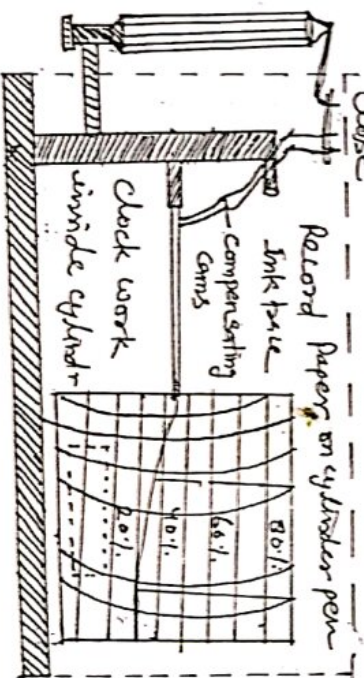 Record Paper on cylinder pen
Ink trace
Compensating
Cams
Clock work
inside cylindr
80%
60%
40%
20%